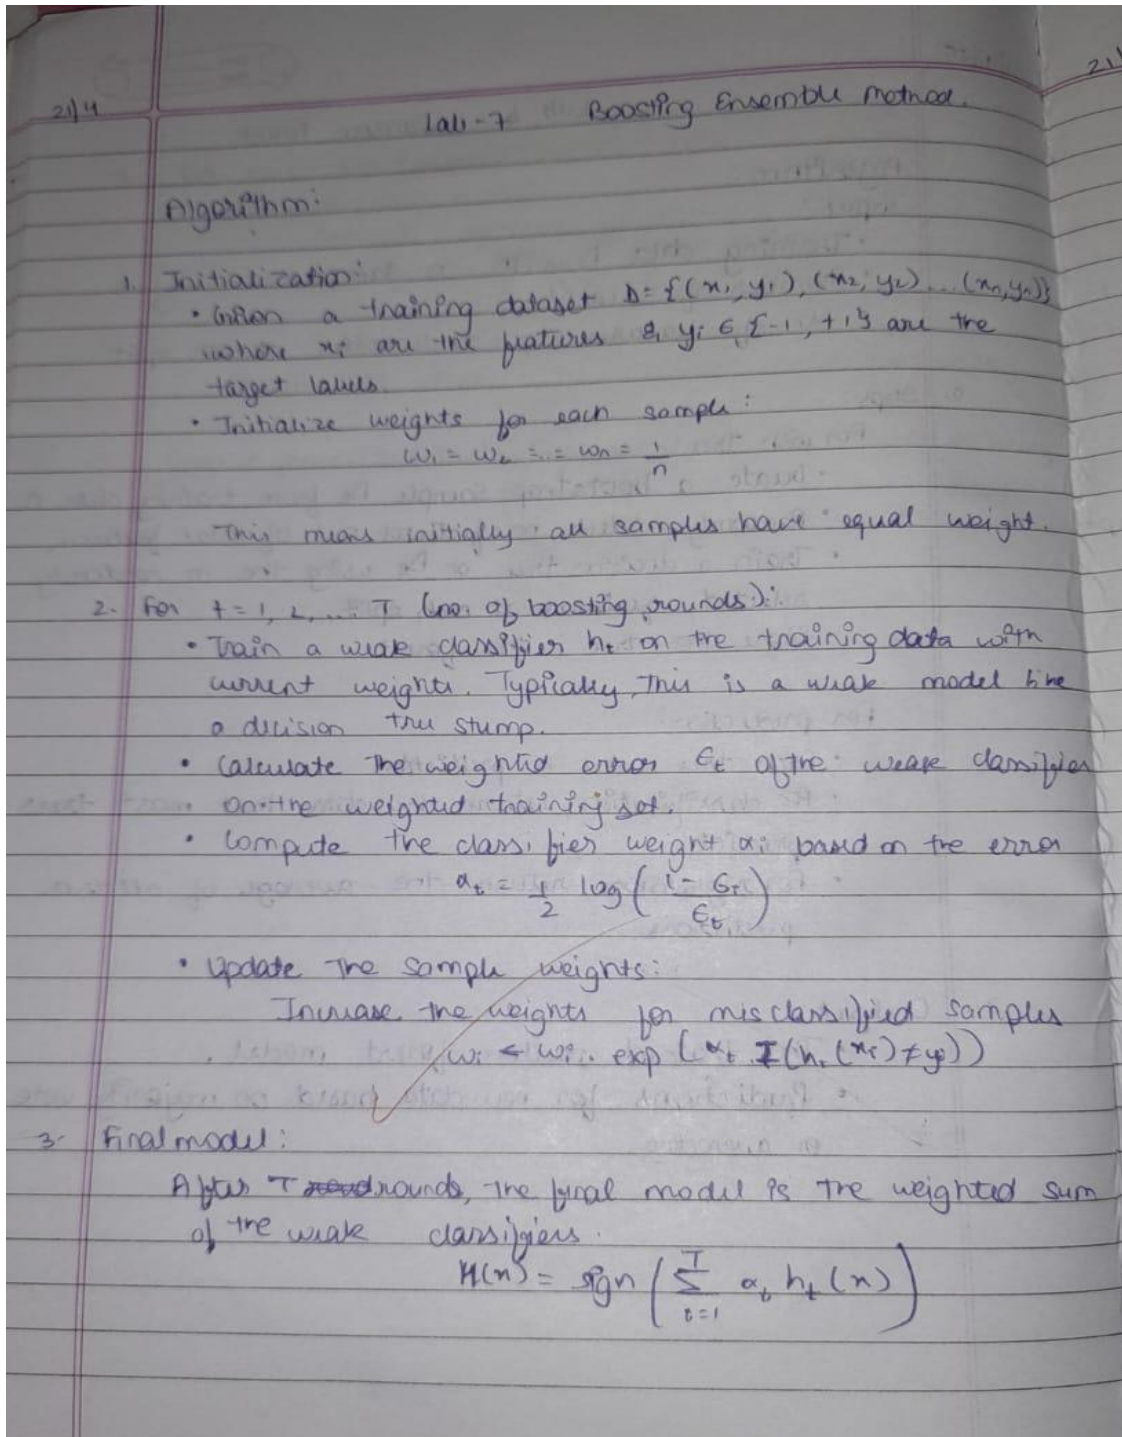 21/4
Lab-7 Boosting Ensemble method.
Algorithm:
1. Initialization:
• Given a training dataset D = {(x₁, y₁), (x₂, y₂)... (xₙ, yₙ)}
where xᵢ are the features & yᵢ ∈ {-1, +1} are the
target labels.
• Initialize weights for each sample:
w₁ = w₂ = ... = wₙ = 1/n
This means initially all samples have equal weight.
2. For t = 1, 2, ... T (no. of boosting rounds):
• Train a weak classifier hₜ on the training data with
current weights. Typically, this is a weak model like
a decision tree stump.
• Calculate the weighted error εₜ of the weak classifier
on the weighted training set.
• Compute the classifier weight αᵢ based on the error
αₜ = 1/2 log((1 - εₜ)/εₜ)
• Update the sample weights:
Increase the weights for misclassified samples
wᵢ ← wᵢ. exp(αₜ. I(hₜ(xᵢ) ≠ yᵢ))
3. Final model:
After T rounds, the final model is the weighted sum
of the weak classifiers.
H(x) = sign(∑ₜ₌₁ᵀ αₜ hₜ(x))